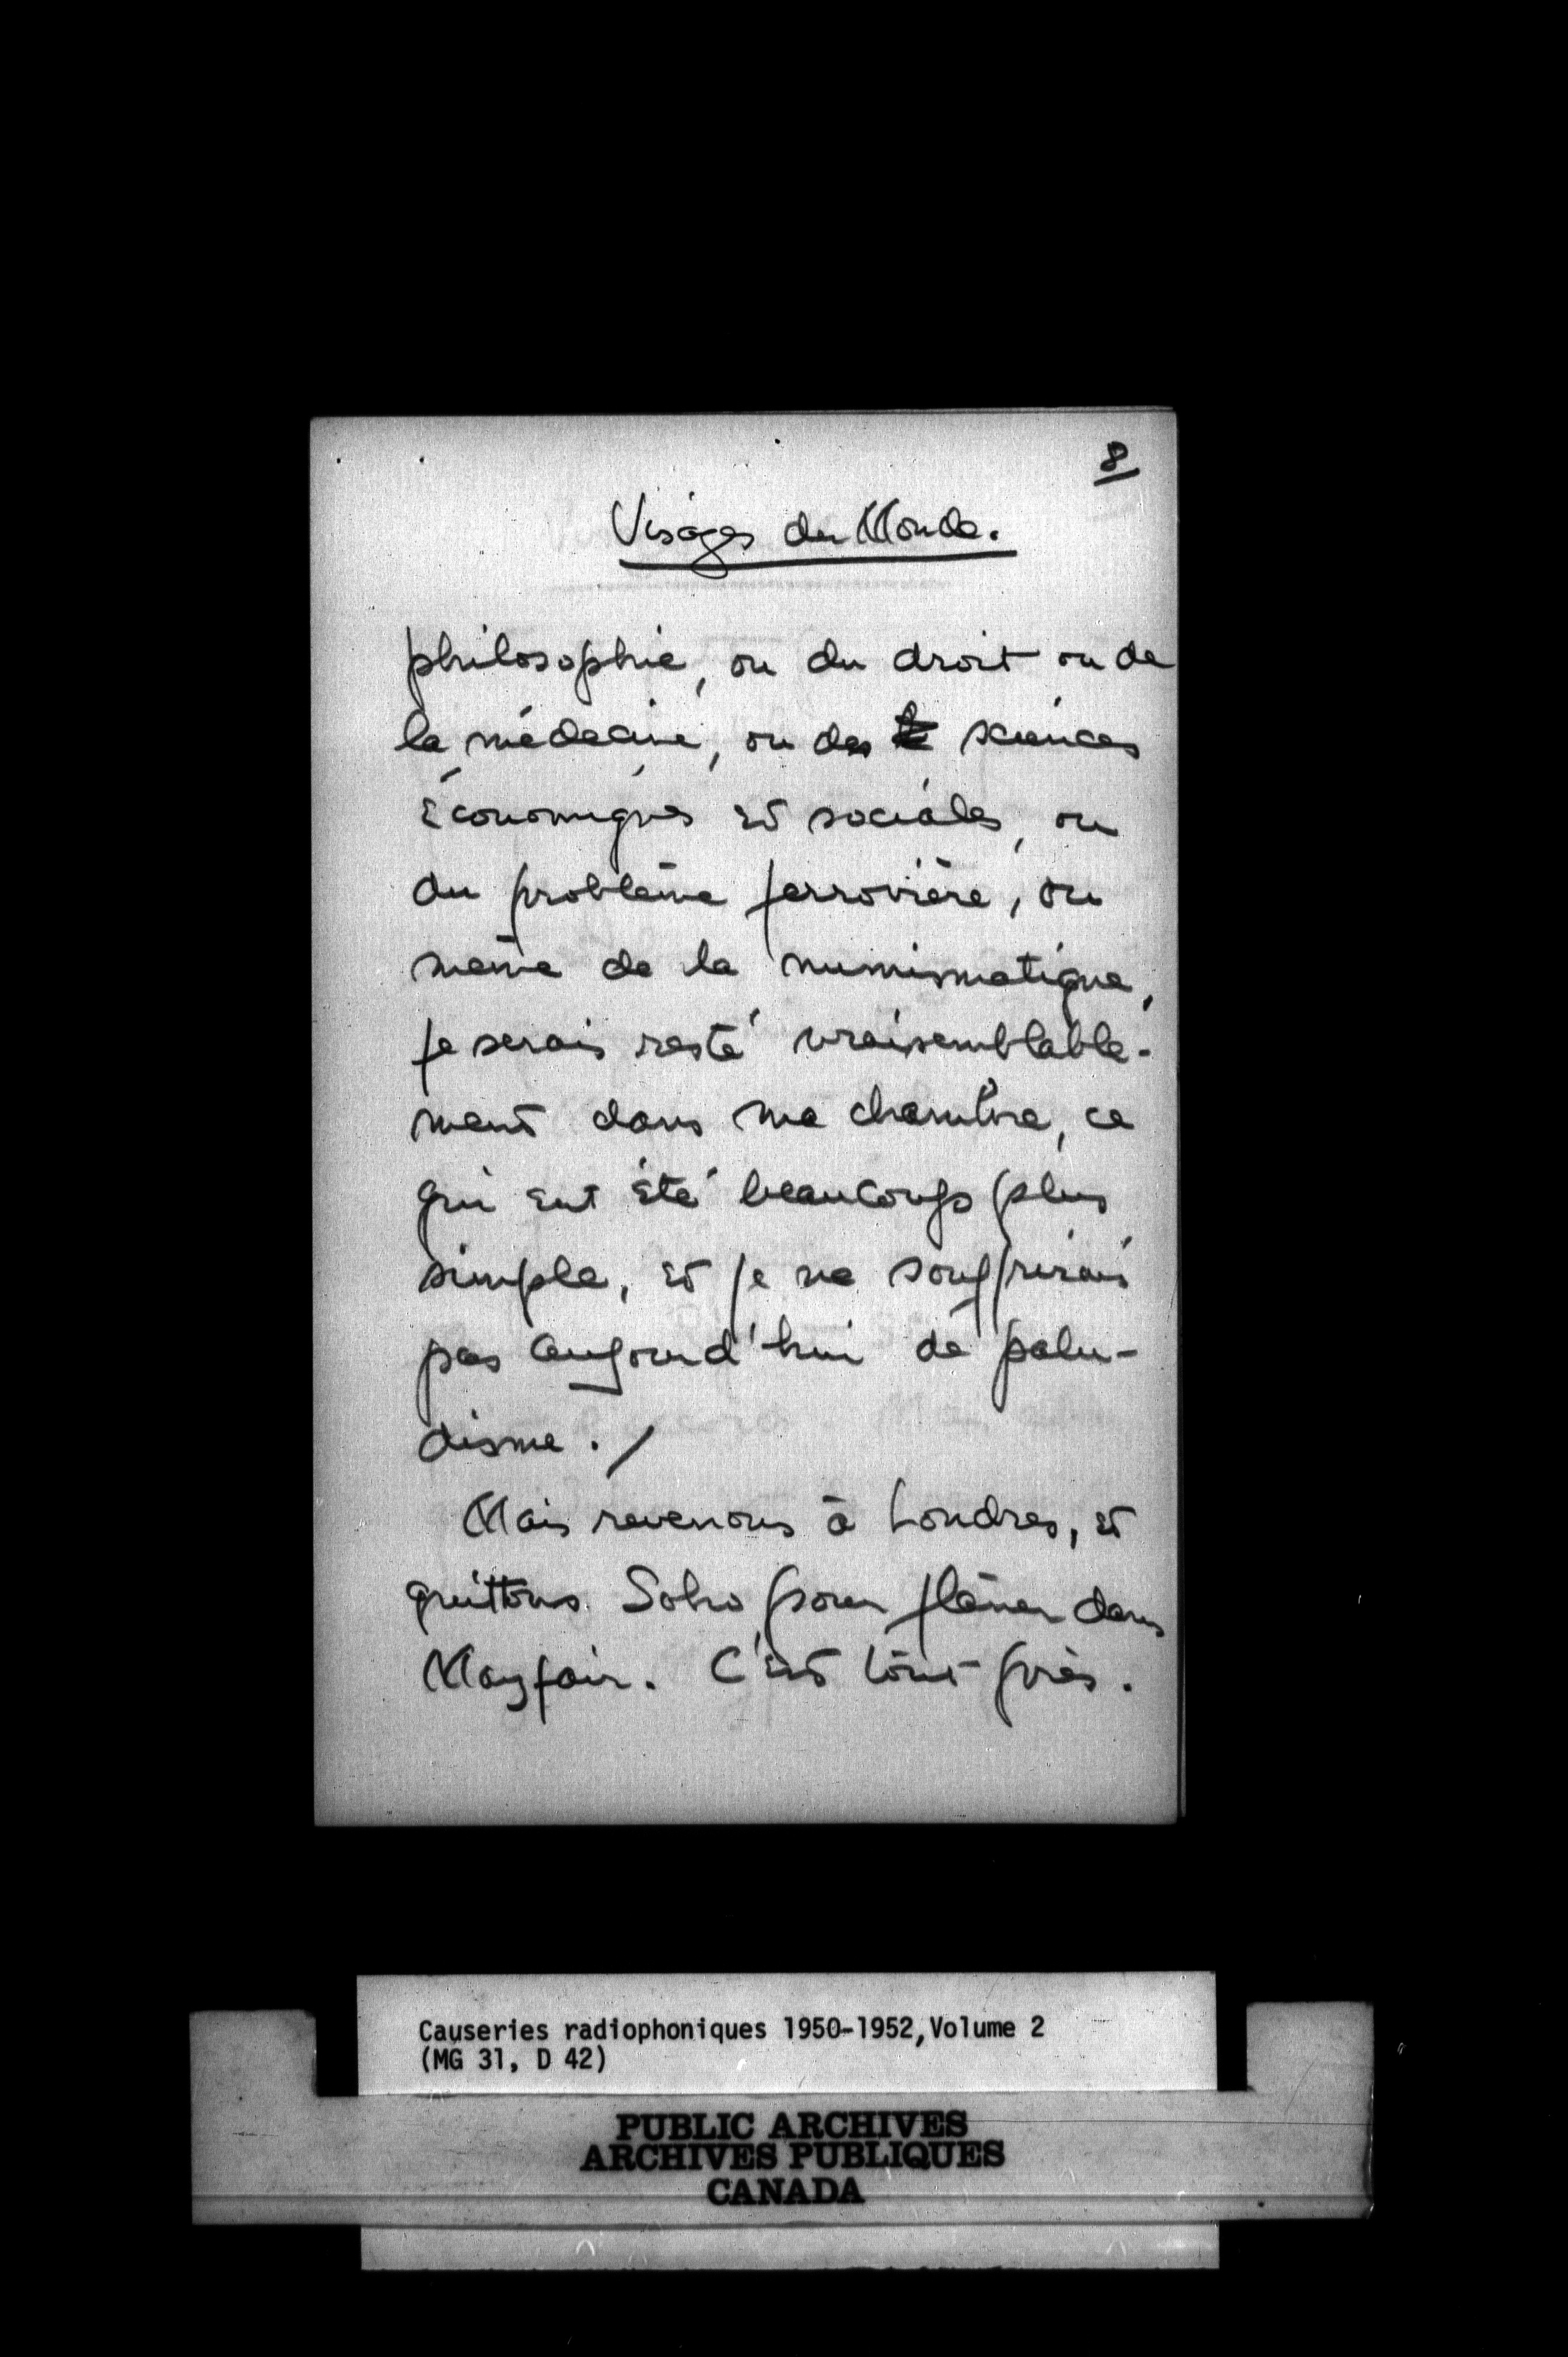 8
Visages du Monde.
philosophie, ou du droit ou de
la médecine, ou des sciences
économiques et sociales, ou
du problème ferrovière, ou
même de la numismatique,
je serais resté vraisemblable-
ment dans ma chambre, ce
qui eut été beaucoup plus
simple, et je ne souffrirais
pas aujourd'hui de palu-
disme. /
Mais revenons à Londres, et
quittons Soho pour flâner dans
Mayfair. C'est tout près.
Causeries radiophoniques 1950-1952, Volume 2
(MG 31, D 42)
PUBLIC ARCHIVES
ARCHIVES PUBLIQUES
CANADA